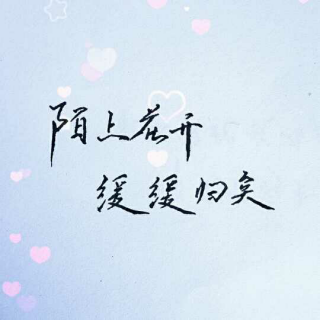 陌上花开
缓缓归矣